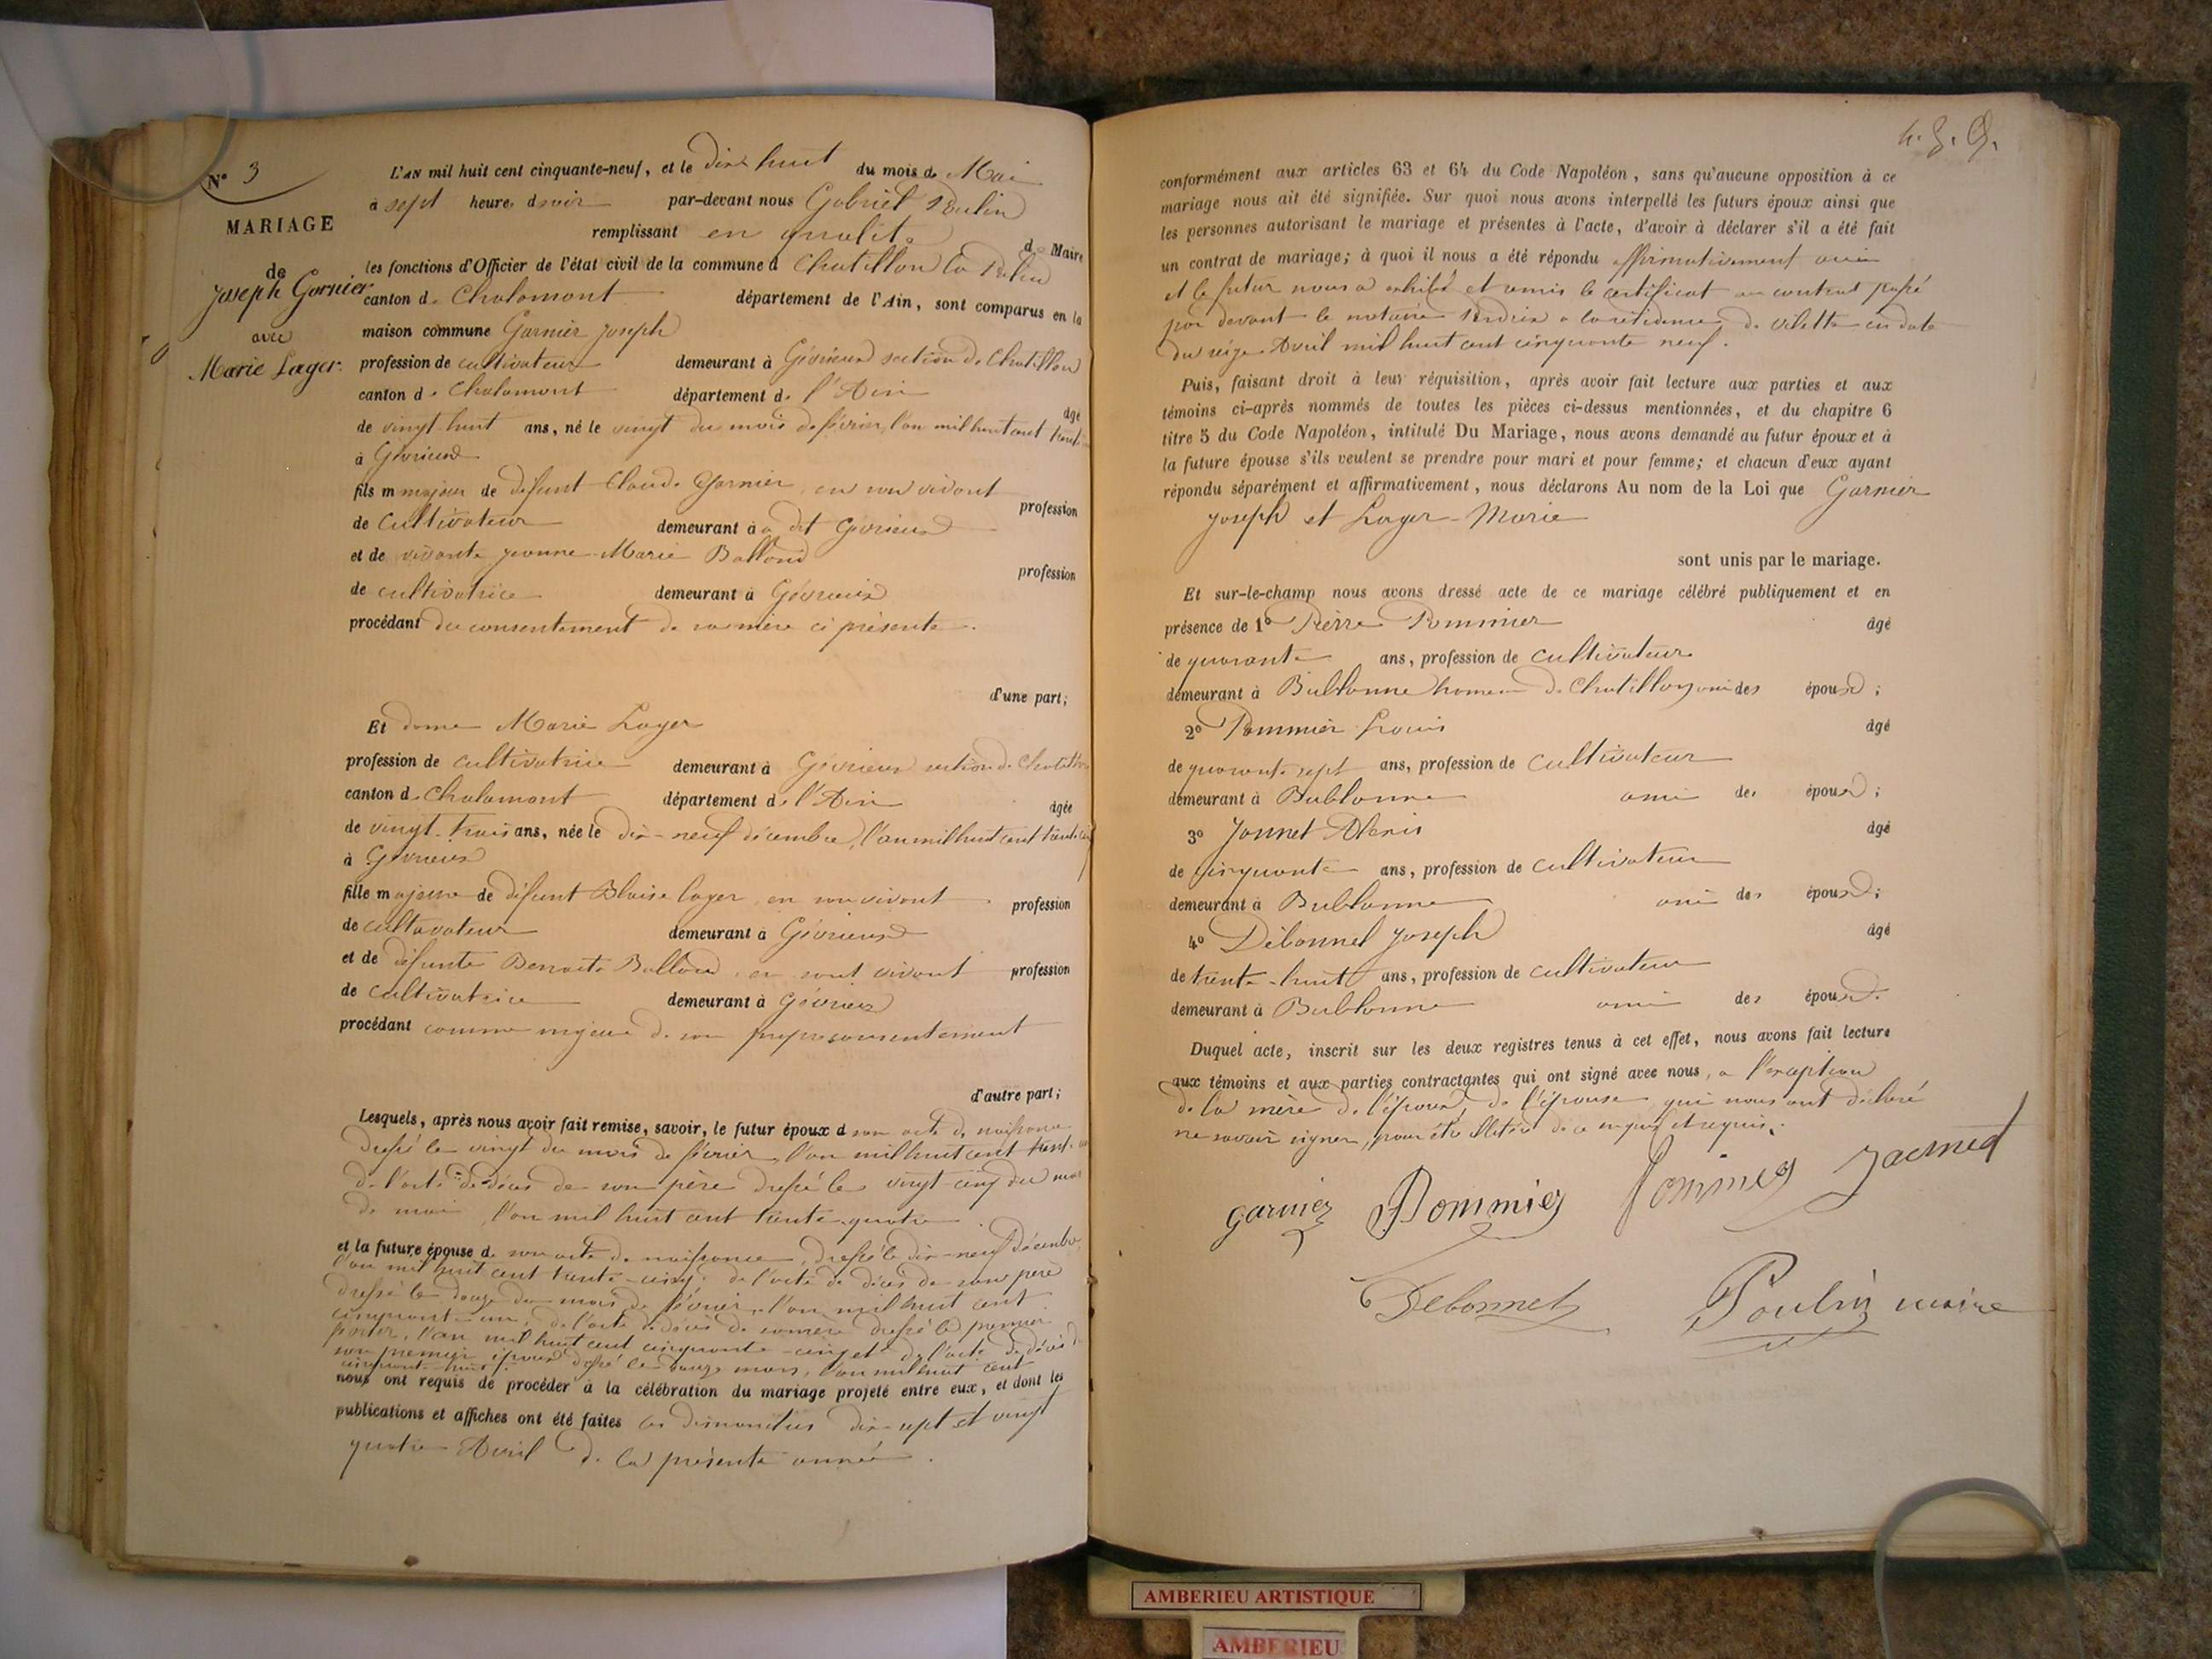 N° 3
MARIAGE
de
Joseph Garnier
avec
Marie Layer.
L'AN mil huit cent cinquante-neuf, et le dix huit du mois de Mai
à sept heures du soir par-devant nous Gabriel Poulin
remplissant en qualité de Maire
les fonctions d'Officier de l'état civil de la commune d Chatillon la Palud
canton de Chalamont département de l'Ain, sont comparus en la
maison commune Garnier Joseph
profession de cultivateur demeurant à Gévrieux section de Chatillon
canton de Chalamont département de l'Ain
âgé
de vingt huit ans, né le vingt du mois de février l'an mil huit cent
à Gévrieux
fils majeur de défunt Claude Garnier, en son vivant
profession
de Cultivateur demeurant à dit Gévrieux
et de vivante Jeanne-Marie Balland
profession
de cultivatrice demeurant à Gévrieux
procédant du consentement de sa mère ci présente.
d'une part;
Et dame Marie Layer
profession de cultivatrice demeurant à Gévrieux section de Chatillon
canton de Chalamont département de l'Ain
âgée
de vingt-trois ans, née le dix-neuf décembre, l'an mil huit cent trente cinq
à Gévrieux
fille majeure de défunt Blaise Layer, en son vivant profession
de cultivateur demeurant à Gévrieux
et de défunte Benoite Balland, en sont vivant profession
de cultivatrice demeurant à Gévrieux
procédant comme majeure de son propre consentement
d'autre part;
Lesquels, après nous avoir fait remise, savoir, le futur époux d son acte de naissance
dressé le vingt du mois de février, l'an mil huit cent
de l'acte de décès de son père dressé le vingt-cinq du mois
de mai, l'an mil huit cent trente-quatre
et la future épouse de son acte de naissance, dressé le dix-neuf décembre
l'an mil huit cent trente-cinq, de l'acte de décès de son père
dressé le douze du mois de février, l'an mil huit cent
cinquante-un, de l'acte de décès de sa mère dressé le premier
l'an mil huit cent cinquante-cinq et de l'acte de décès de
son premier époux dressé le mars, l'an mil huit cent
cinquante-
nous ont requis de procéder à la célébration du mariage projeté entre eux, et dont les
publications et affiches ont été faites les dimanches dix-sept et vingt
quatre Avril de la présente année.
conformément aux articles 63 et 64 du Code Napoléon, sans qu'aucune opposition à ce
mariage nous ait été signifiée. Sur quoi nous avons interpellé les futurs époux ainsi que
les personnes autorisant le mariage et présentes à l'acte, d'avoir à déclarer s'il a été fait
un contrat de mariage; à quoi il nous a été répondu affirmativement oui
et le futur nous a exhibé et remis le certificat au contrat passé
par devant le notaire a la résidence de Vilette en date
du seize Avril mil huit cent cinquante neuf.
Puis, faisant droit à leur réquisition, après avoir fait lecture aux parties et aux
témoins ci-après nommés de toutes les pièces ci-dessus mentionnées, et du chapitre 6
titre 5 du Code Napoléon, intitulé Du Mariage, nous avons demandé au futur époux et à
la future épouse s'ils veulent se prendre pour mari et pour femme; et chacun d'eux ayant
répondu séparément et affirmativement, nous déclarons Au nom de la Loi que Garnier
Joseph et Layer-Marie
sont unis par le mariage.
Et sur-le-champ nous avons dressé acte de ce mariage célébré publiquement et en
présence de 1° Pierre Pommier âgé
de quarante ans, profession de cultivateur
demeurant à Bublanne hameau de Chatillon, ami des époux;
2° Pommier Louis âgé
de quarante sept ans, profession de cultivateur
demeurant à Bublanne ami des époux;
3° Jannet Alexis âgé
de cinquante ans, profession de cultivateur
demeurant à Bublanne ami des époux;
4° Débonnel Joseph âgé
de trente-huit ans, profession de cultivateur
demeurant à Bublanne ami des époux.
Duquel acte, inscrit sur les deux registres tenus à cet effet, nous avons fait lecture
aux témoins et aux parties contractantes qui ont signé avec nous, a l'exception
de la mère de l'époux, de l'épouse qui nous ont déclaré
ne savoir signer, pour être illétrées de ce enquis et requis.
garnier Pommier Pommier Jacmet
Debonnel Poulin maire
AMBERIEU ARTISTIQUE
AMBERIEU